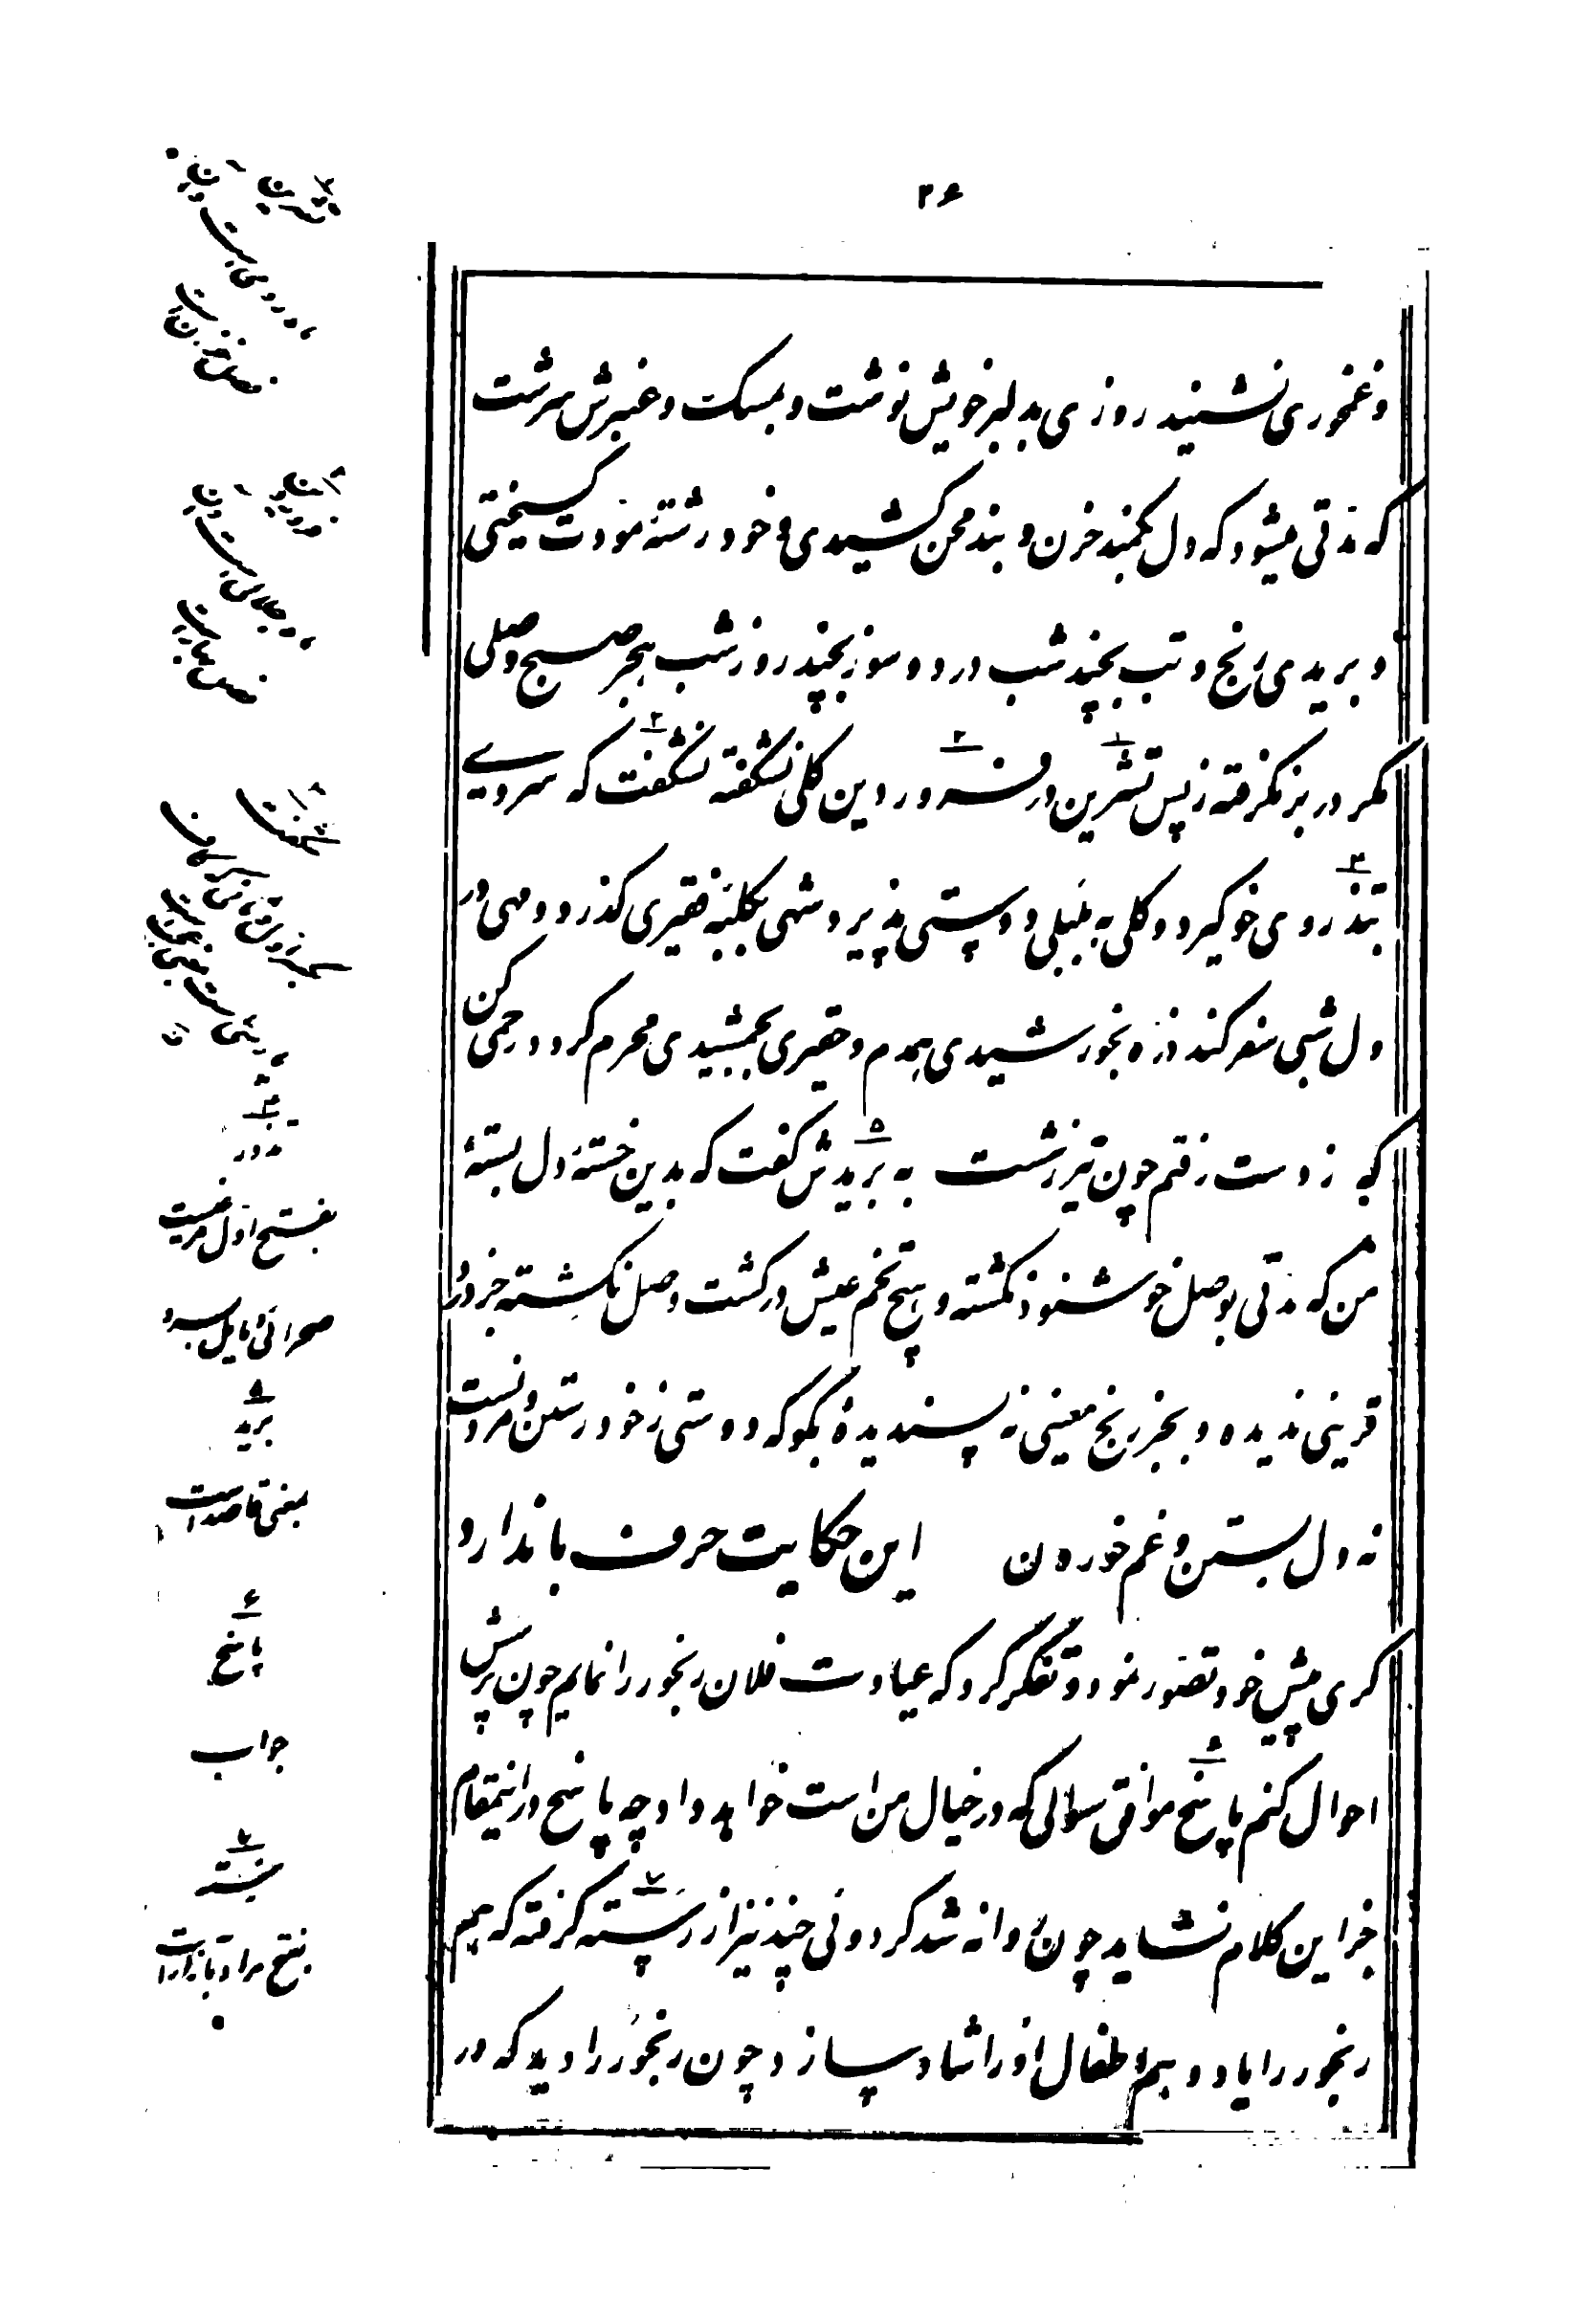 ۲۶
و غمخوری نشنید روزی بدلبر خویش نوشت و بمسک و عنبرش سرشت
که مدتی میشود که دل بکمند حزن و بند محن کشیدی و خود رشتهٔ مودت گسیختی
و بریدی رنج و تب بچند شب درد و سوز بچند روز شب هجر صبح وصلی
مگر در بر نگرفته ز پس تشرین در فروردین گلی نشکفته نشگفت که سروی
تذروی خو گیرد و گلی به بلبلی دوستی پذیرد شهی بکلبهٔ فقیری گذرد و مهی در
دل شبی سفر کند ذره بخورشیدی همدم و حقیری بجمشیدی محرم گردد رحمی کن
که ز دست رفتم چون تیر ز شست به بریدش گفت که بدین خستهٔ دل بستهٔ
من که مدتی بوصل خوشنود نگشته و هیچ تخم عیش در کشت وصل نکشته جز درد
قرینی ندیده و بجز رنج معینی نه پسندیده بگو که دوستی ز خود رستن و مردنست
نه دل بستن و غم خوردن این حکایت حرف با ندارد
کری پیش خود تصور نمود و تفکر کرد که عیادت فلان رنجور را نمایم چون پرسش
احوال کنم پاسخ موافق سوالی که در خیال من است خواهد داد چه پاسخ در اینمقام
جز این کلام نشاید چون روانه شد گردوئی چند نیز از رسته گرفته که هم
رنجور را یاد و هم اطفال او را شاد سازد چون رنجور را دید که در
تذرو
بفتح اول مرغیست
صحرائی مایل بسرو
برید
بمعنی قاصد است
پاسخ
جواب
رسته
بفتح مراد بازار است